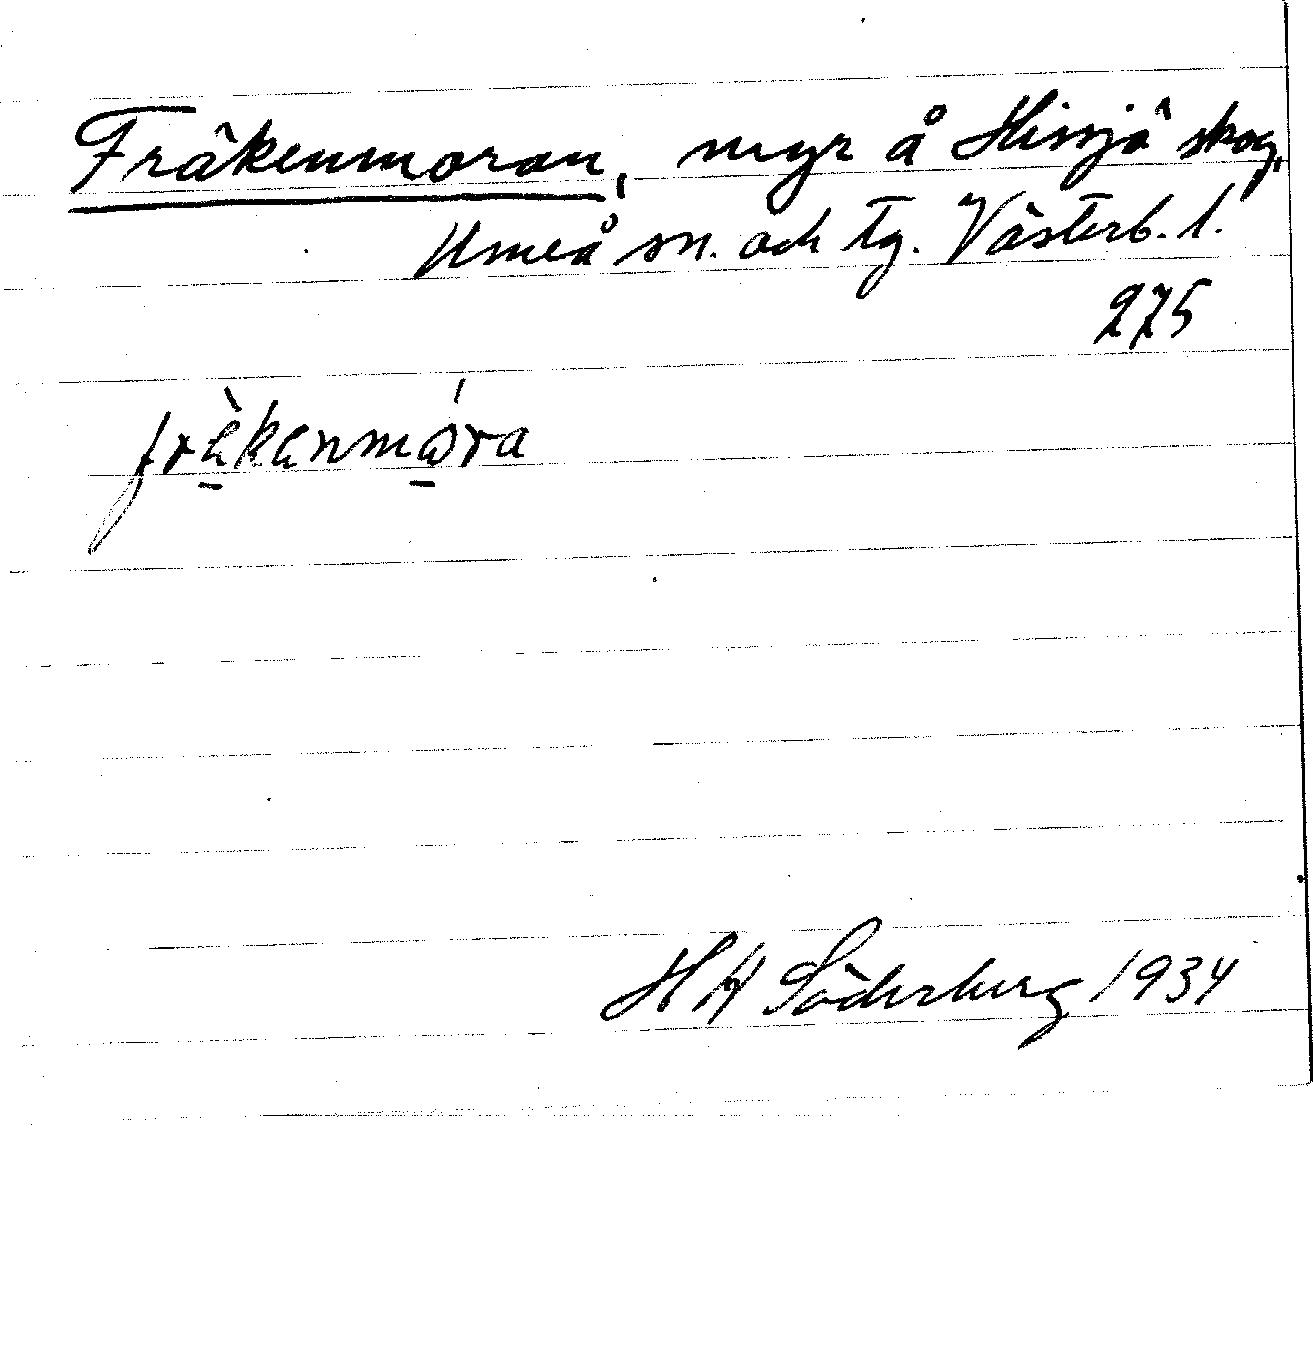 Fräkenmoran, myr å Hissjö skog,
Umeå sn. och tg. Västerb. l.
275
fräkenmóra
H A Söderberg 1934